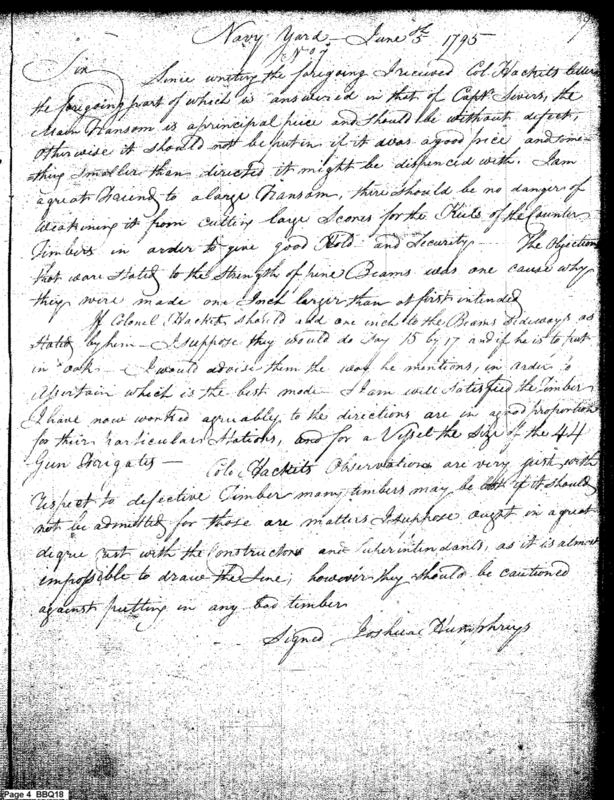 Navy Yard — June 5th 1795
No 7
Sir Since writing the foregoing I received Col. Hackets letter
the foregoing part of which is answered in that of Capt. Severs, the
Main Transom is a principal piece and should be without defect,
otherwise it should not be put in if it was a good price and some-
thing smaller than directed it might be dispenced with. I am
a great friend to a large Transom, there should be no danger of
weakening it from cutting large Scores for the Heels of the Counter
Timbers in order to give good Hold and Security — The Objections
that ware Stated to the Strength of pine Beams was one cause why
they were made one Inch larger than at first intended
If Colonel Hacket, should add one inch to the Beams Sideways as
Stated by him — I suppose they would do Say 15 by 17 and if he is to put
in oak — I would advise them the way he mentions, in order to
ascertain which is the best mode — I am well Satisfied the Timber
I have now worked agreeably to the directions are in a good proportion
for their particular Stations, and for a Vessel the Size of the 44
Gun Frigates — Colo. Hackets Observations are very just with
respect to defective Timber many timbers may be if it should
not be admitted, for those are matters I suppose ought in a great
degree rest with the Constructors and Superintendants, as it is almost
impossible to draw the Line, however they should be cautioned
against putting in any bad timber
Signed Joshua Humphreys
Page 4 BBQ18